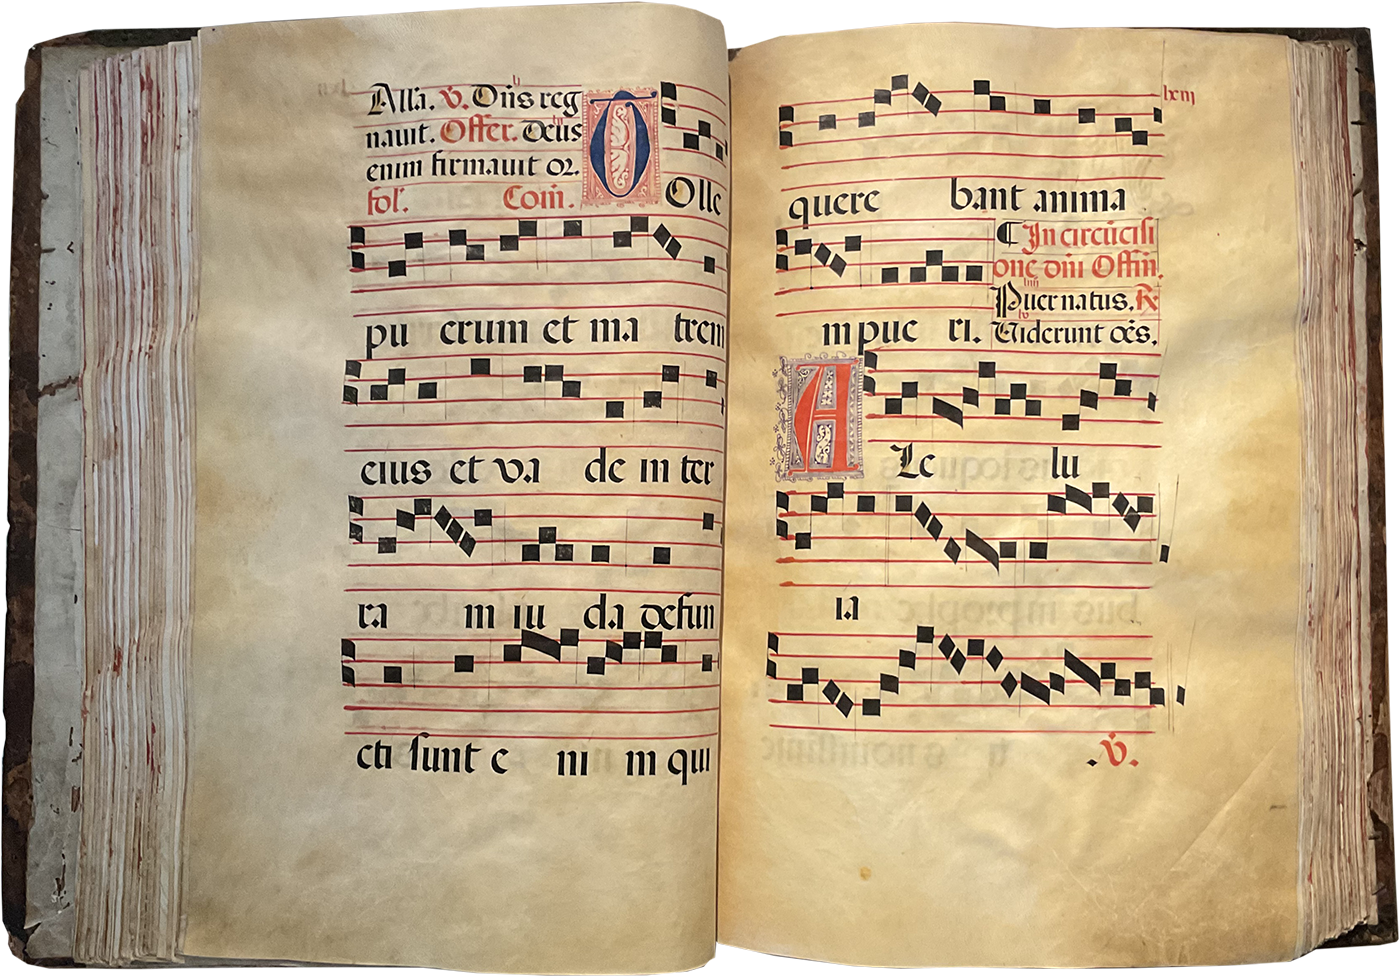 Alla. ℣. Dñs reg
nauit. Offer. Deus
enim firmauit or.
fol. Com̃.
TOlle
pu erum et ma trem
eius et va de in ter
ra m iu da defun
cti sunt e ni m qui
lxiij
quere bant anima
¶ In circũcisi
one dñi Offiñ.
m pue ri.
Puer natus. ℟
Viderunt oẽs.
ALe lu
ia
.℣.